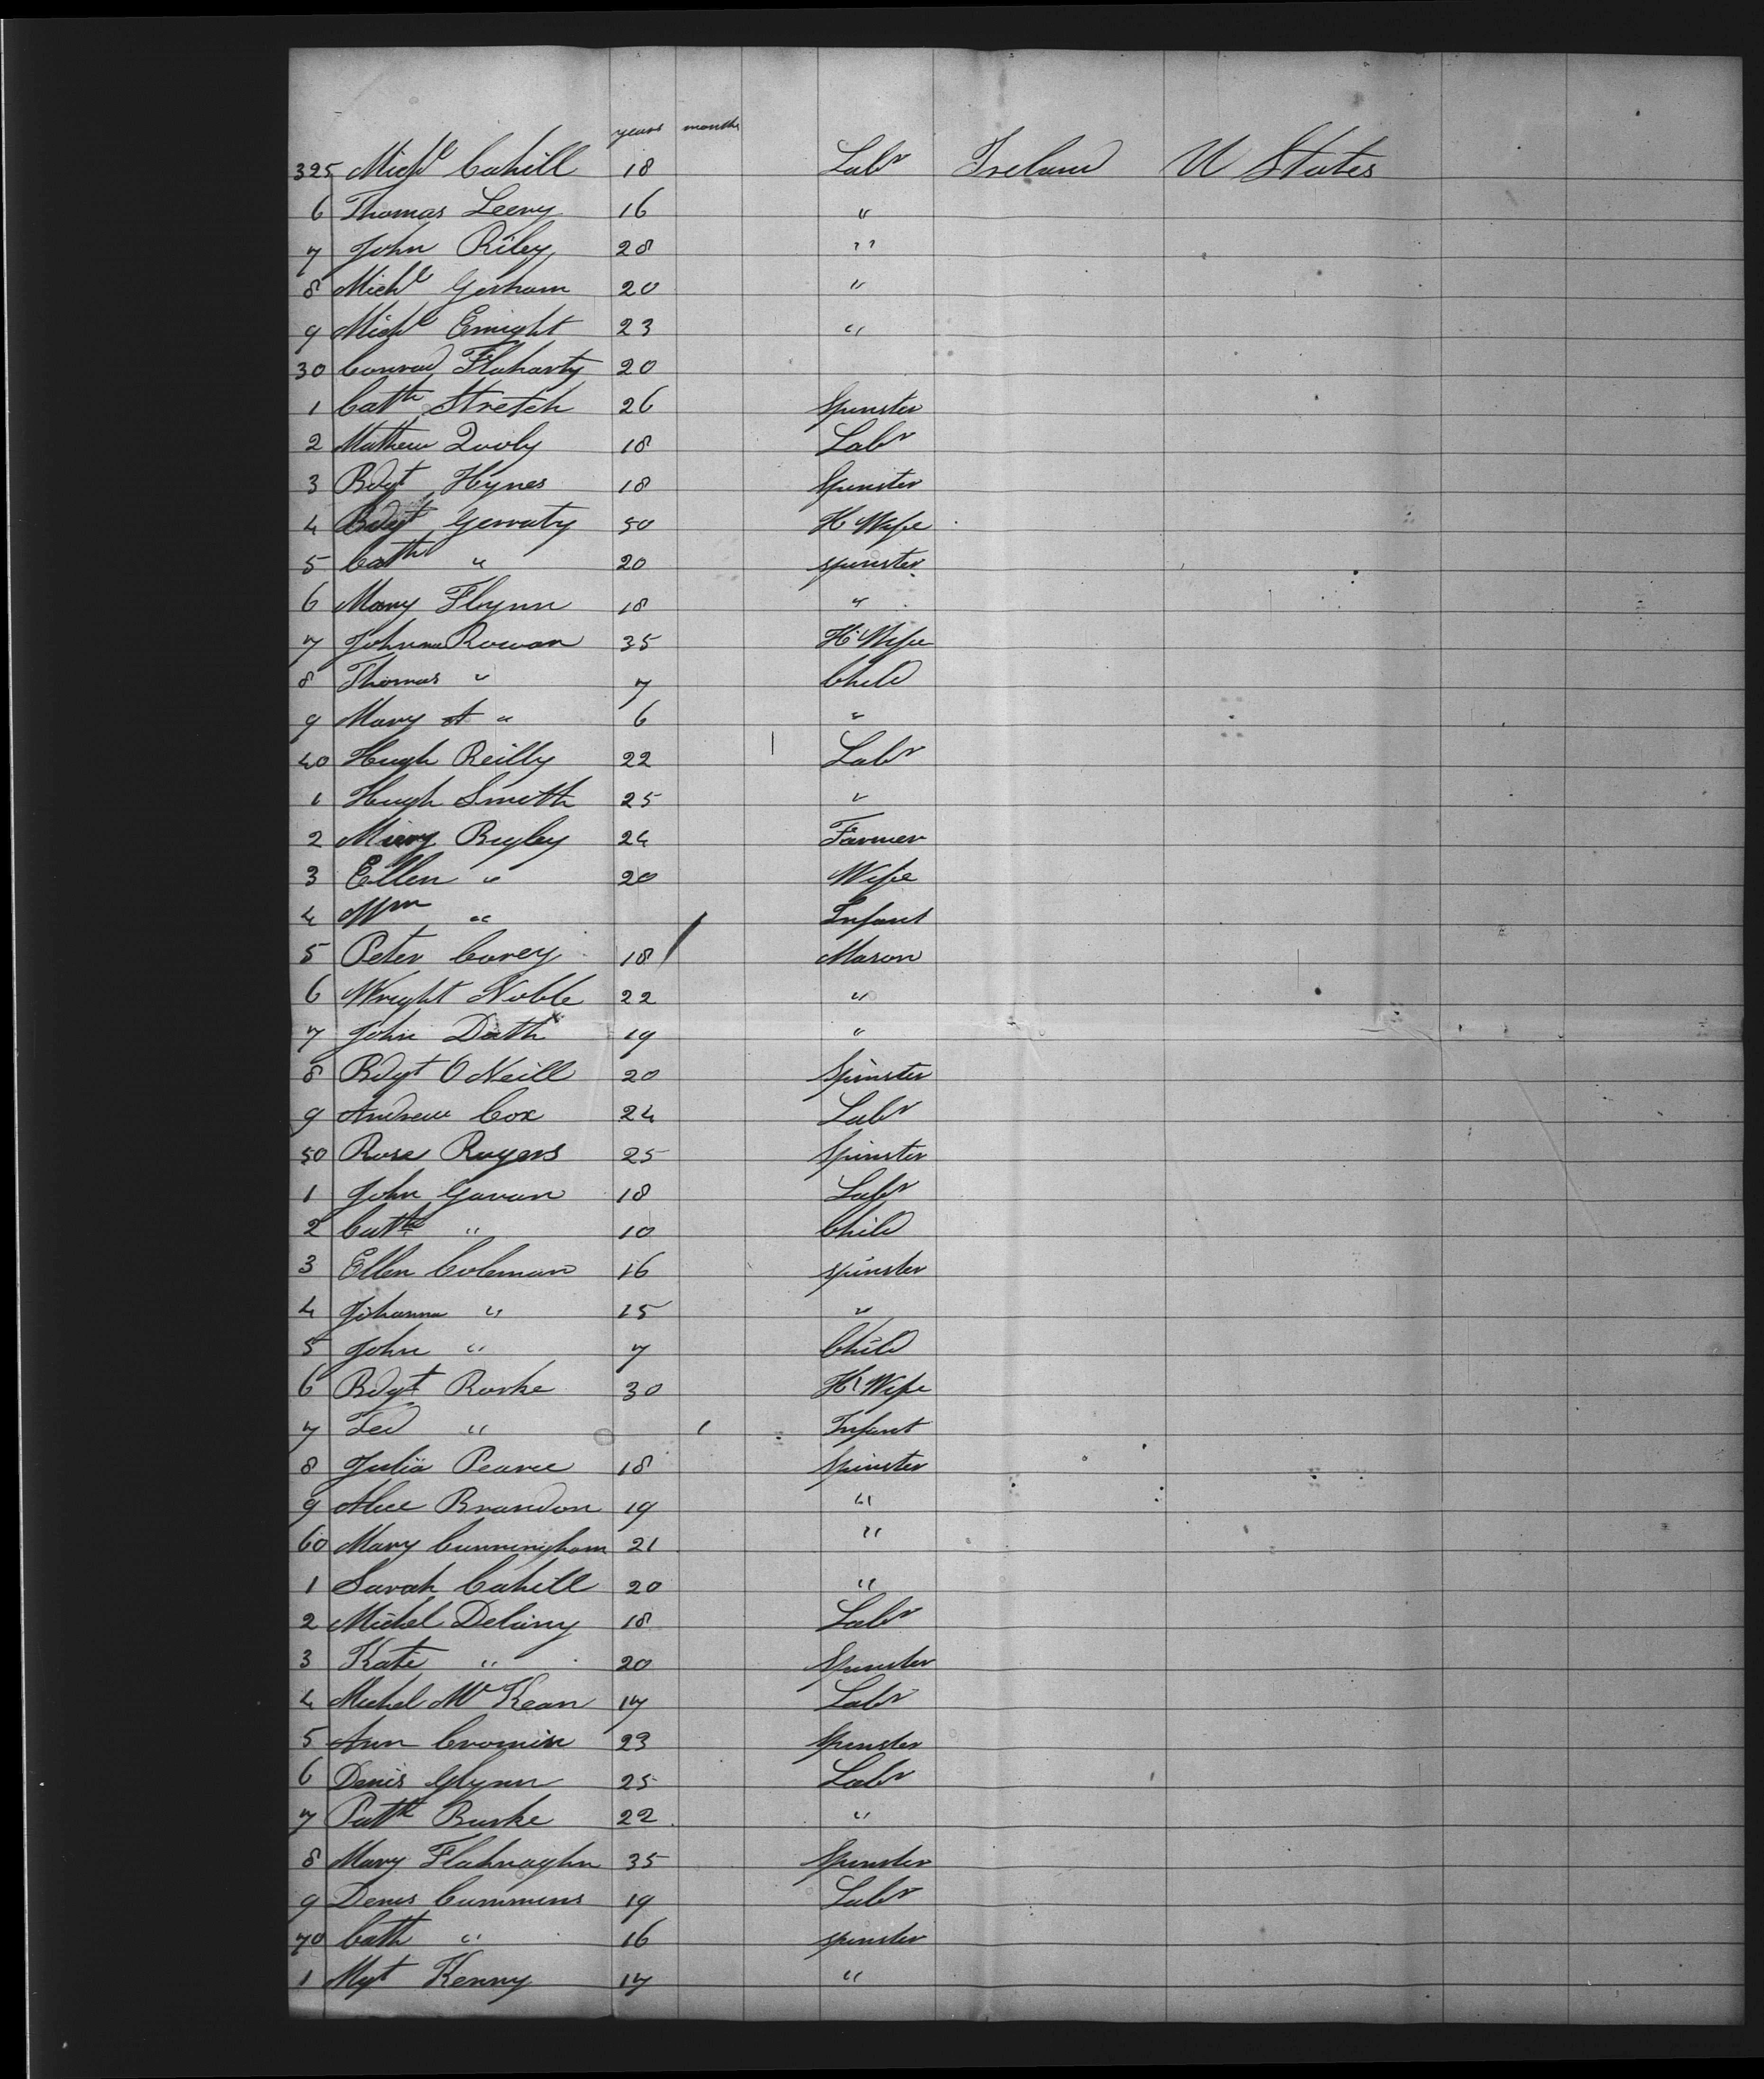 years months
325 Michl Cahill 18 Labr Ireland U States
6 Thomas Leery 16 "
7 John Riley 28 "
8 Michl Gorham 20 "
9 Michl Enright 23 "
30 Conrad Flaharty 20
1 Cath Stretch 26 Spinster
2 Mathew Dooly 18 Labr
3 Bdgt Hynes 18 Spinster
4 Bdgt Gerraty 50 H Wife
5 Cath " 20 spinster
6 Mary Flynn 18 "
7 Johnna Rowan 35 H Wife
8 Thomas " 7 Child
9 Mary A " 6 "
40 Hugh Reilly 22 Labr
1 Hugh Smith 25 "
2 Bigley 24 Farmer
3 Ellen " 20 Wife
4 Wm " 1 Infant
5 Peter Corey 18 Mason
6 Wright Noble 22 "
7 John Dath 19 "
8 Bdgt O Neill 20 Spinster
9 Andrew Cox 24 Labr
50 Rose Rogers 25 Spinster
1 John Gavan 18 Labr
2 Cath " 10 Child
3 Ellen Coleman 16 spinster
4 Johanna " 15 "
5 John " 7 Child
6 Bdgt Rorke 30 H Wife
7 Ted " 1 Infant
8 Julia Pearce 18 Spinster
9 Alice Brandon 19 "
60 Mary Cunningham 21 "
1 Sarah Cahill 20 "
2 Michel Delany 18 Labr
3 Kate " 20 Spinster
4 Michel Mc Kean 17 Labr
5 Ann Cromin 23 Spinster
6 Denis Glynn 25 Labr
7 Patk Burke 22 "
8 Mary Flahnaghn 35 Spinster
9 Denis Cummins 19 Labr
70 Cath " 16 spinster
1 Mgt Kenny 17 "